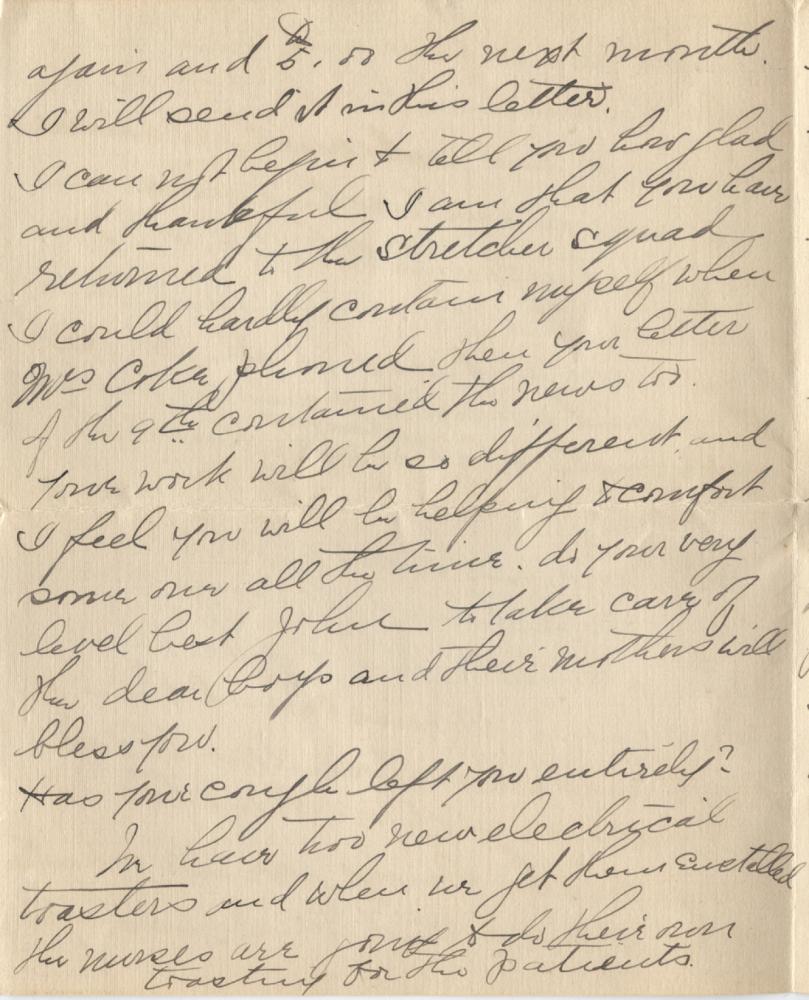 again and $5.00 the next month.
I will send it in this letter.
I can not begin to tell you how glad
and thankful I am that you have
returned to the stretcher squad
I could hardly contain myself when
Mrs Coke phoned then your letter
of the 9th contained the news too.
Your work will be so different, and
I feel you will be helping & comfort
some one all the time. do your very
level best John to take care of
the dear boys and their mothers will
bless you.
Has your cough left you entirely?
We have two new electrical
toasters and when we get them enstalled
the nurses are going to do their own
toasting for the patients.